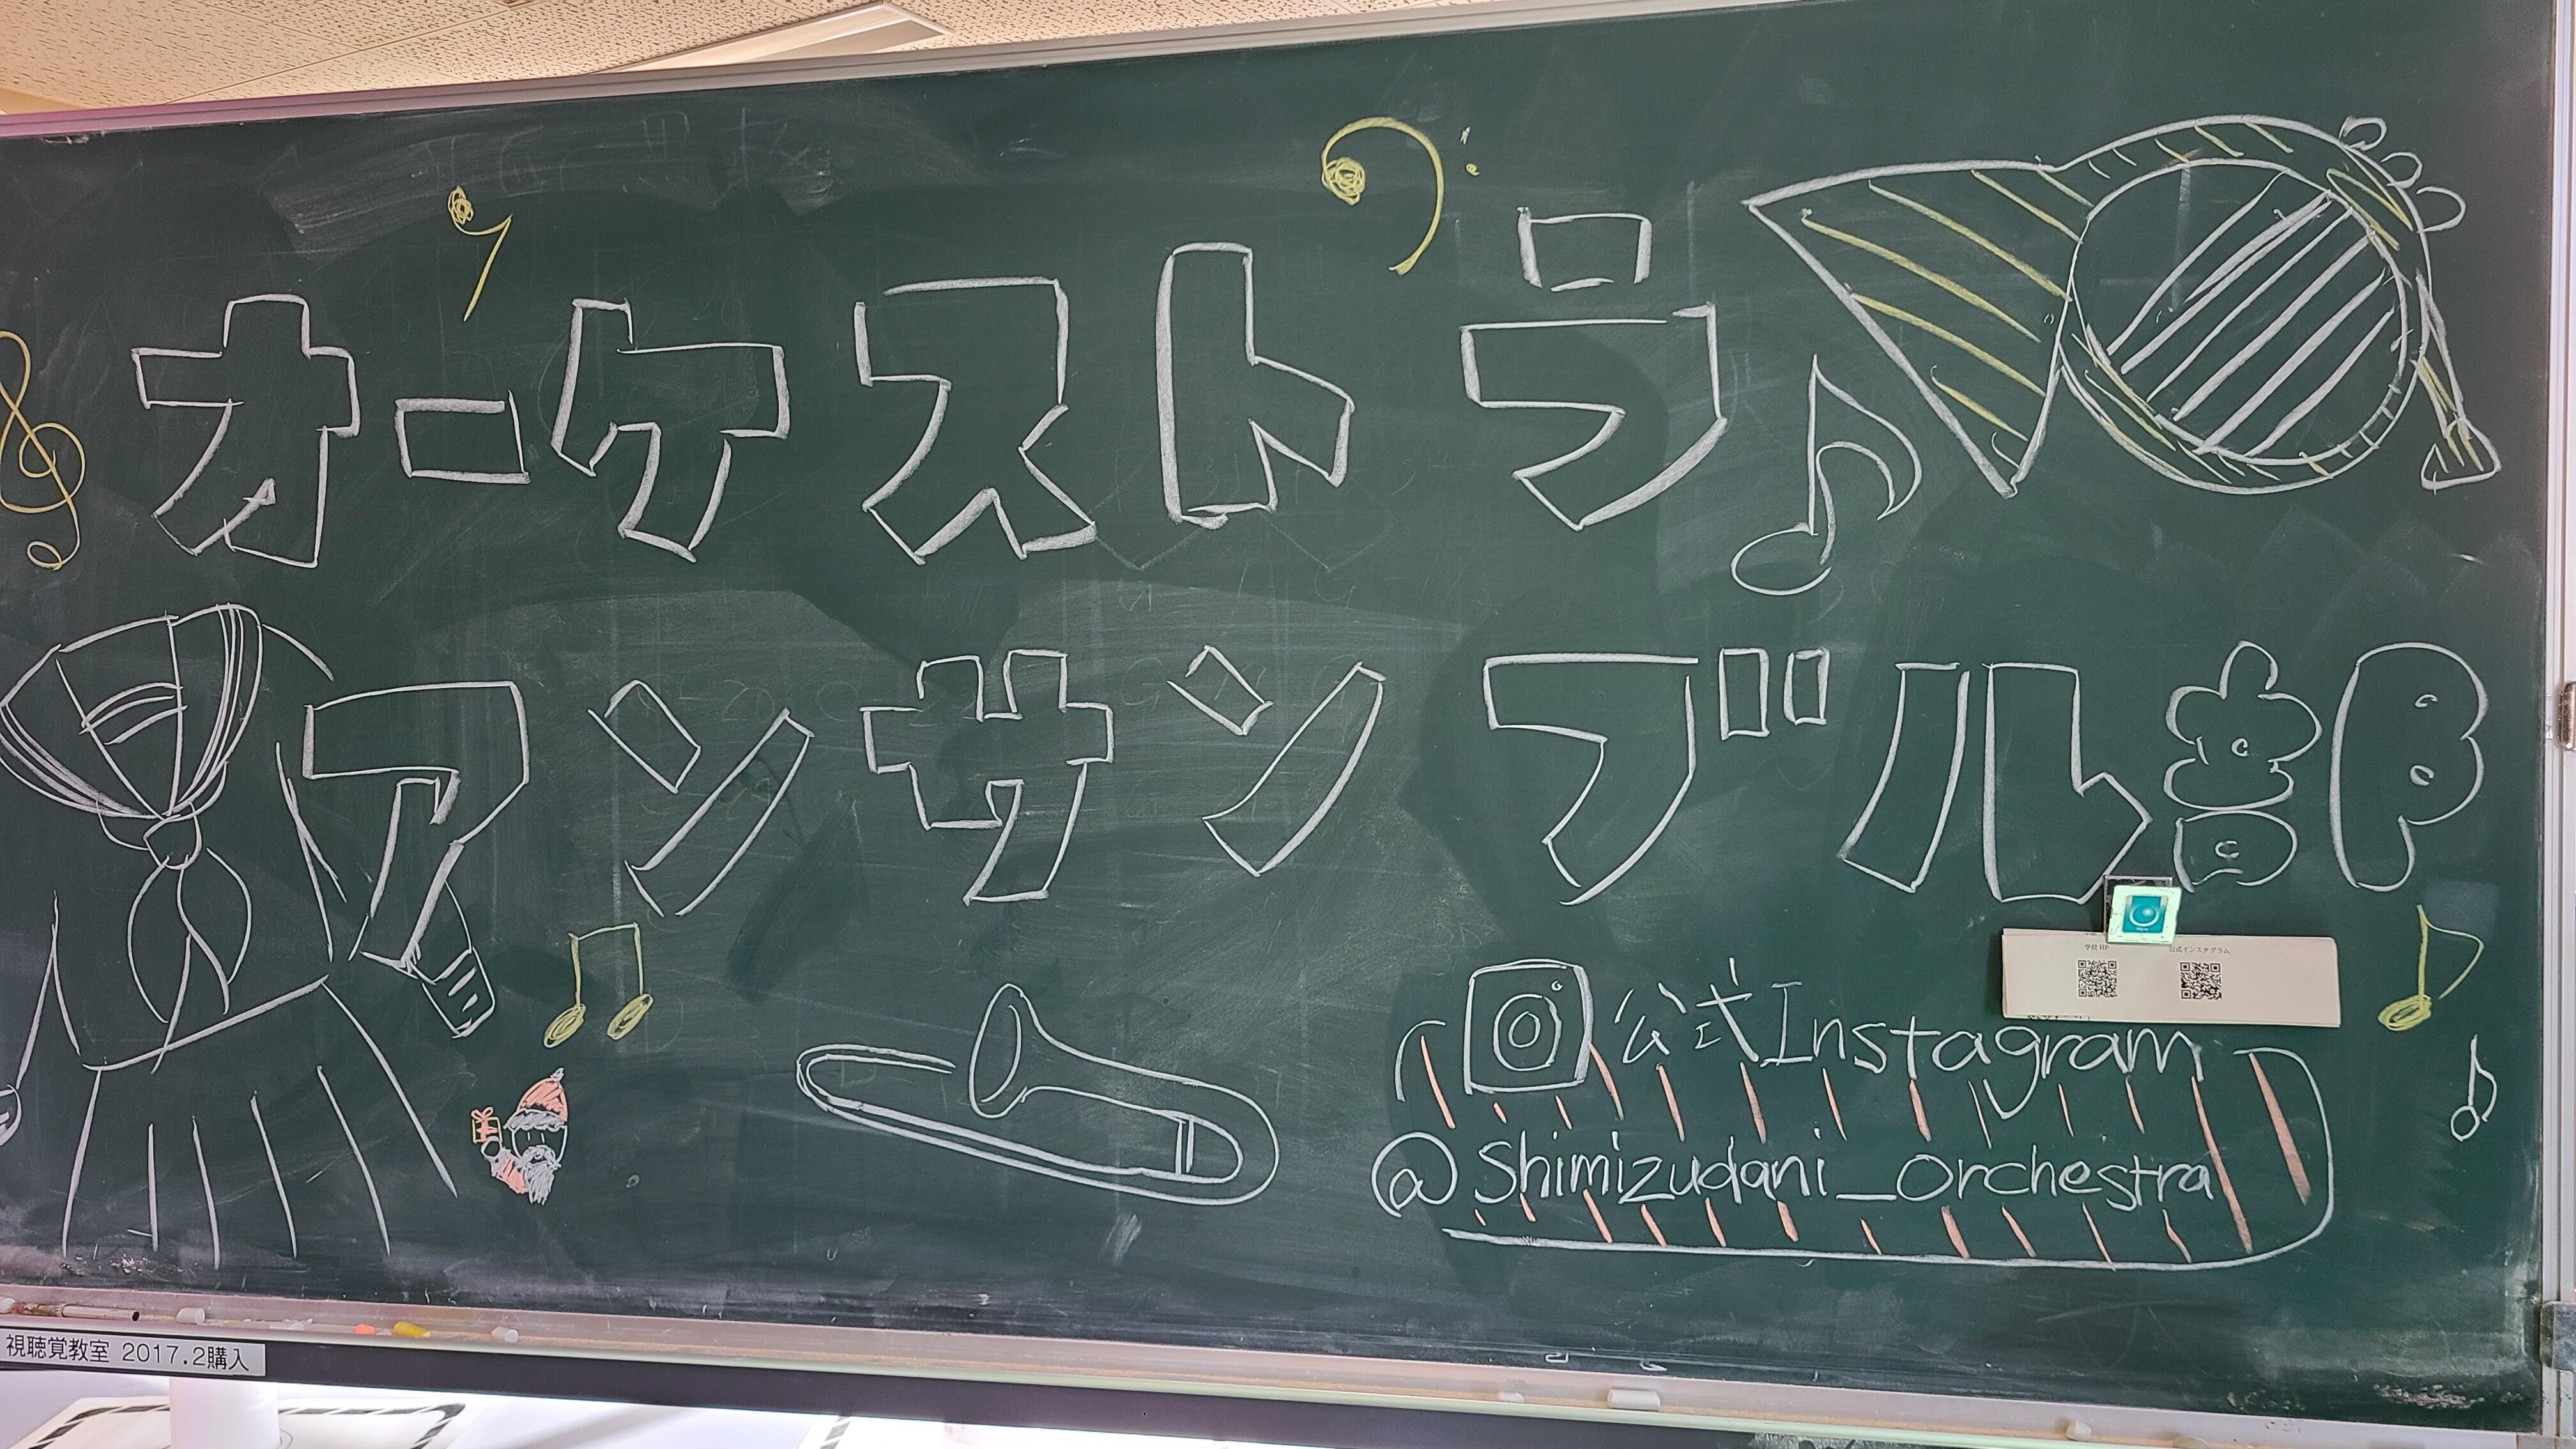 オーケストラ
アンサンブル部
学校HP
公式インスタグラム
公式Instagram
@shimizudani_orchestra
視聴覚教室 2017.2購入